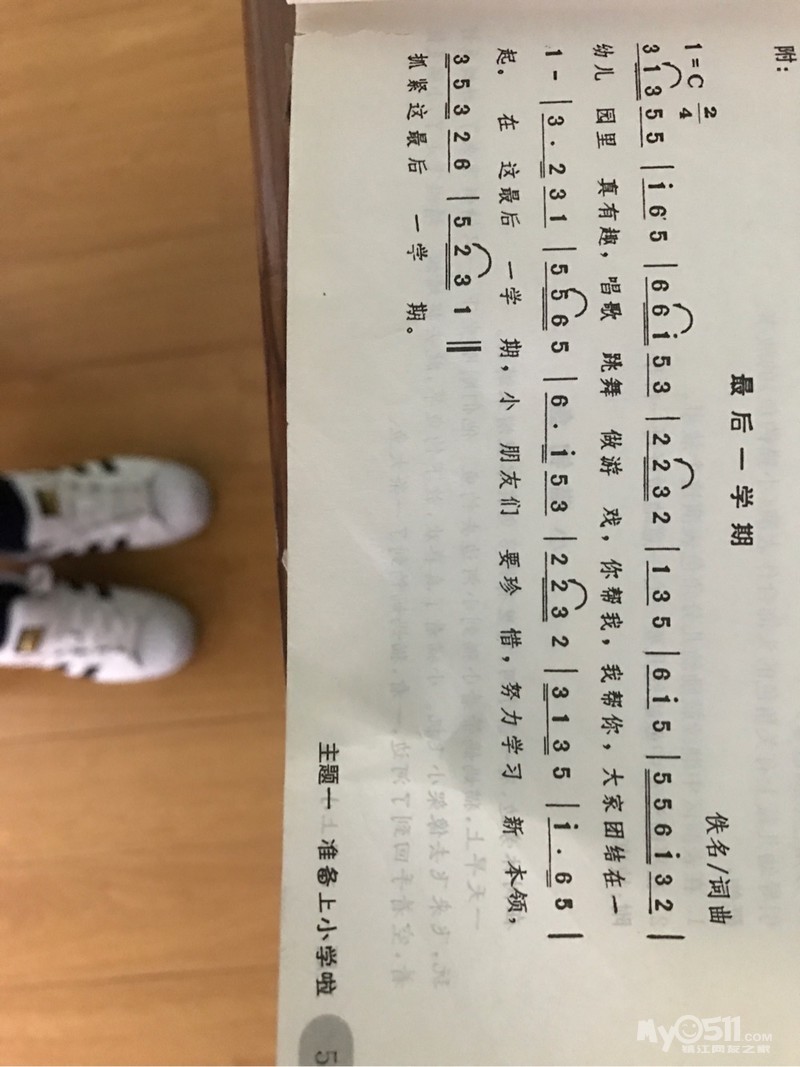 附：
最后一学期
1=C 2/4
佚名/词曲
3 1 3 5 5 | i 6 5 | 6 6 i 5 3 | 2 2 3 2 | 1 3 5 | 6 i 5 | 5 5 6 i 3 2 |
幼儿 园里 真有趣，唱歌 跳舞 做游 戏，你帮我，我帮你，大家团结在一
1 - | 3 · 2 3 1 | 5 5 6 5 | 6 · i 5 3 | 2 2 3 2 | 3 1 3 5 | i · 6 5 |
起。 在 这最后 一学 期，小 朋友们 要珍 惜，努力学习 新 本领，
3 5 3 2 6 | 5 2 3 1 ‖
抓紧这最后 一学 期。
主题一 准备上小学啦
5
My0511.COM
镇江网友之家